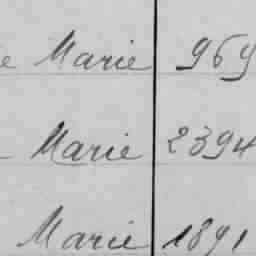 e Marie 969
Marie 2394
Marie 1891